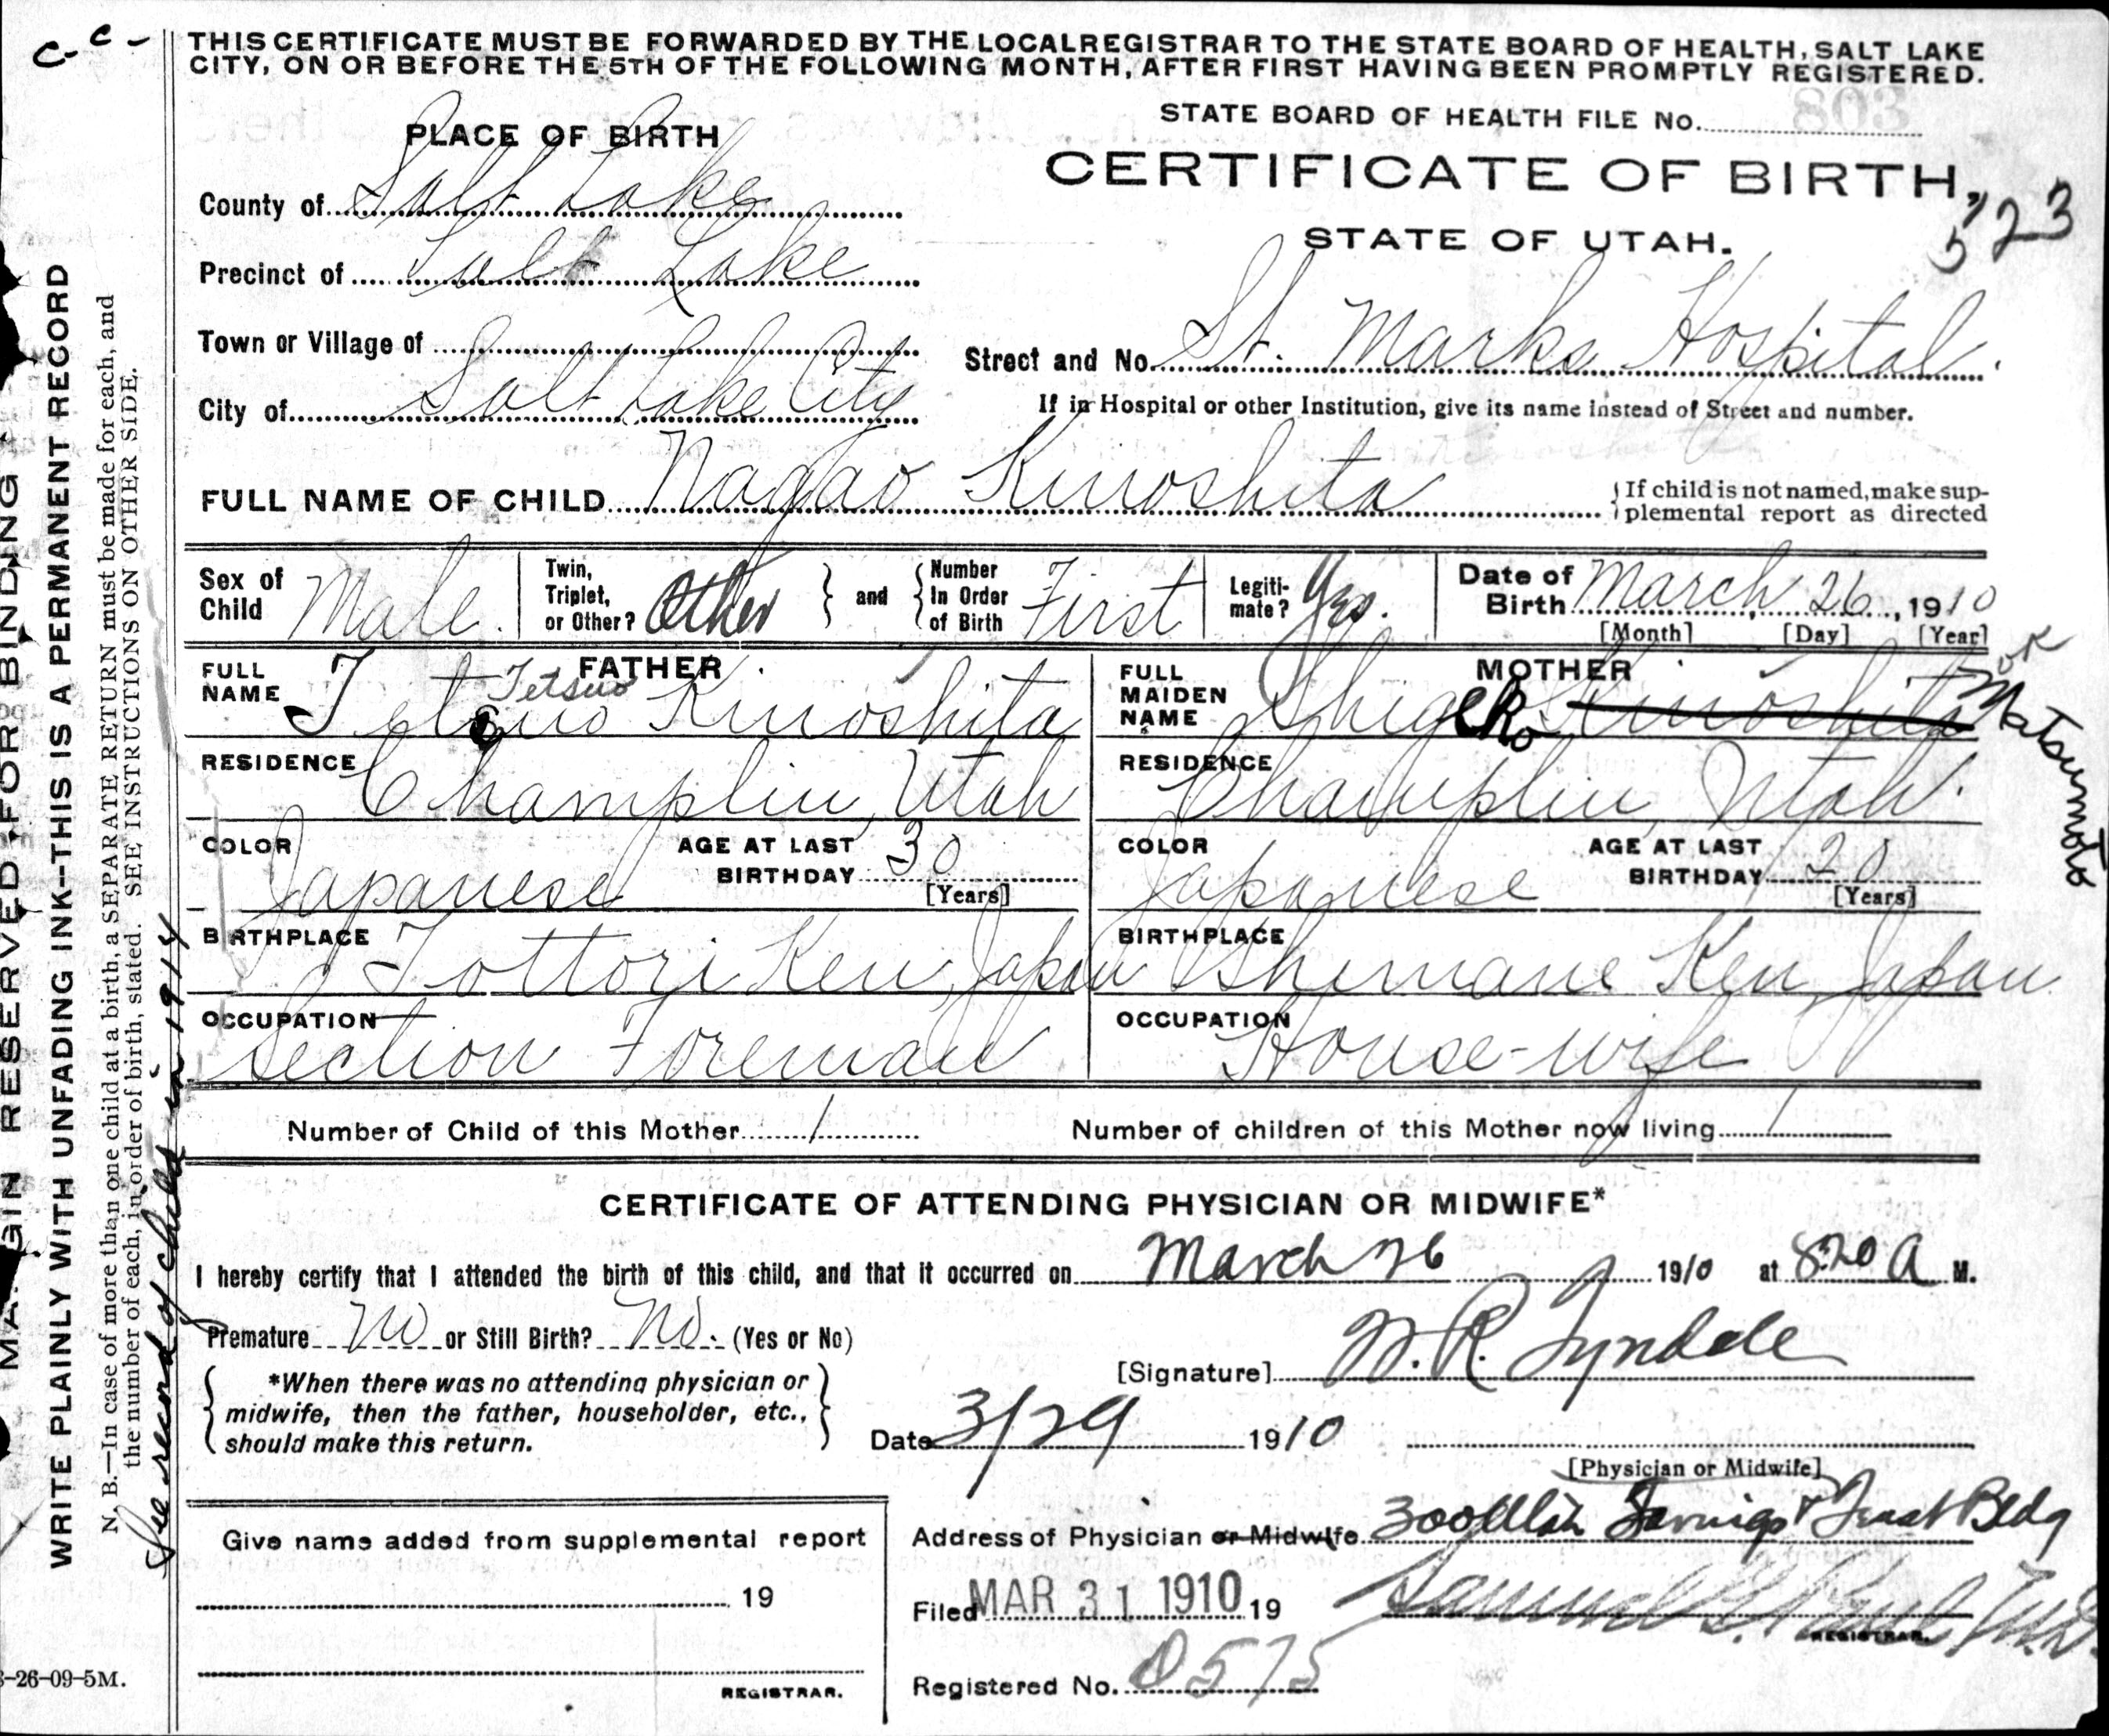 c-c-
THIS CERTIFICATE MUST BE FORWARDED BY THE LOCAL REGISTRAR TO THE STATE BOARD OF HEALTH, SALT LAKE
CITY, ON OR BEFORE THE 5TH OF THE FOLLOWING MONTH, AFTER FIRST HAVING BEEN PROMPTLY REGISTERED.
803
STATE BOARD OF HEALTH FILE No.
PLACE OF BIRTH
CERTIFICATE OF BIRTH,
523
STATE OF UTAH.
County of Salt Lake
Precinct of Salt Lake
Town or Village of
City of Salt Lake City
Street and No. St. Marks Hospital.
If in Hospital or other Institution, give its name instead of Street and number.
FULL NAME OF CHILD Nagao Kinoshita
{If child is not named, make sup-
plemental report as directed
Sex of Child Male.
Twin, Triplet, or Other? Other } and { Number In Order of Birth First
Legiti-mate? Yes.
Date of Birth March 26, 1910
[Month] [Day] [Year]
FATHER
FULL NAME Tetsuo Kinoshita
Tetsuo
RESIDENCE Champlin, Utah
COLOR Japanese
AGE AT LAST BIRTHDAY 30
[Years]
BIRTHPLACE Tottori Ken, Japan
OCCUPATION Section Foreman
MOTHER
FULL MAIDEN NAME Shigeko Kinoshita
Matsumoto
RESIDENCE Champlin, Utah.
COLOR Japanese
AGE AT LAST BIRTHDAY 20
[Years]
BIRTHPLACE Shimane Ken, Japan
OCCUPATION House-wife
Number of Child of this Mother 1
Number of children of this Mother now living 1
CERTIFICATE OF ATTENDING PHYSICIAN OR MIDWIFE*
I hereby certify that I attended the birth of this child, and that it occurred on March 26 1910 at 8.20 A M.
Premature No or Still Birth? No. (Yes or No)
[Signature] W. R. Tyndale
*When there was no attending physician or
midwife, then the father, householder, etc.,
should make this return.
Date 3/29 1910
[Physician or Midwife]
Address of Physician or Midwife 300 Utah Savings & Trust Bldg
Give name added from supplemental report
19
REGISTRAR.
Filed MAR 31 1910 19
Samuel G. Paul M.D.
REGISTRAR.
Registered No. 0575
-26-09-5M.
MARGIN RESERVED FOR BINDING
WRITE PLAINLY WITH UNFADING INK--THIS IS A PERMANENT RECORD
N. B.—In case of more than one child at a birth, a SEPARATE RETURN must be made for each, and
the number of each, in order of birth, stated. SEE INSTRUCTIONS ON OTHER SIDE.
See record of child in 1914